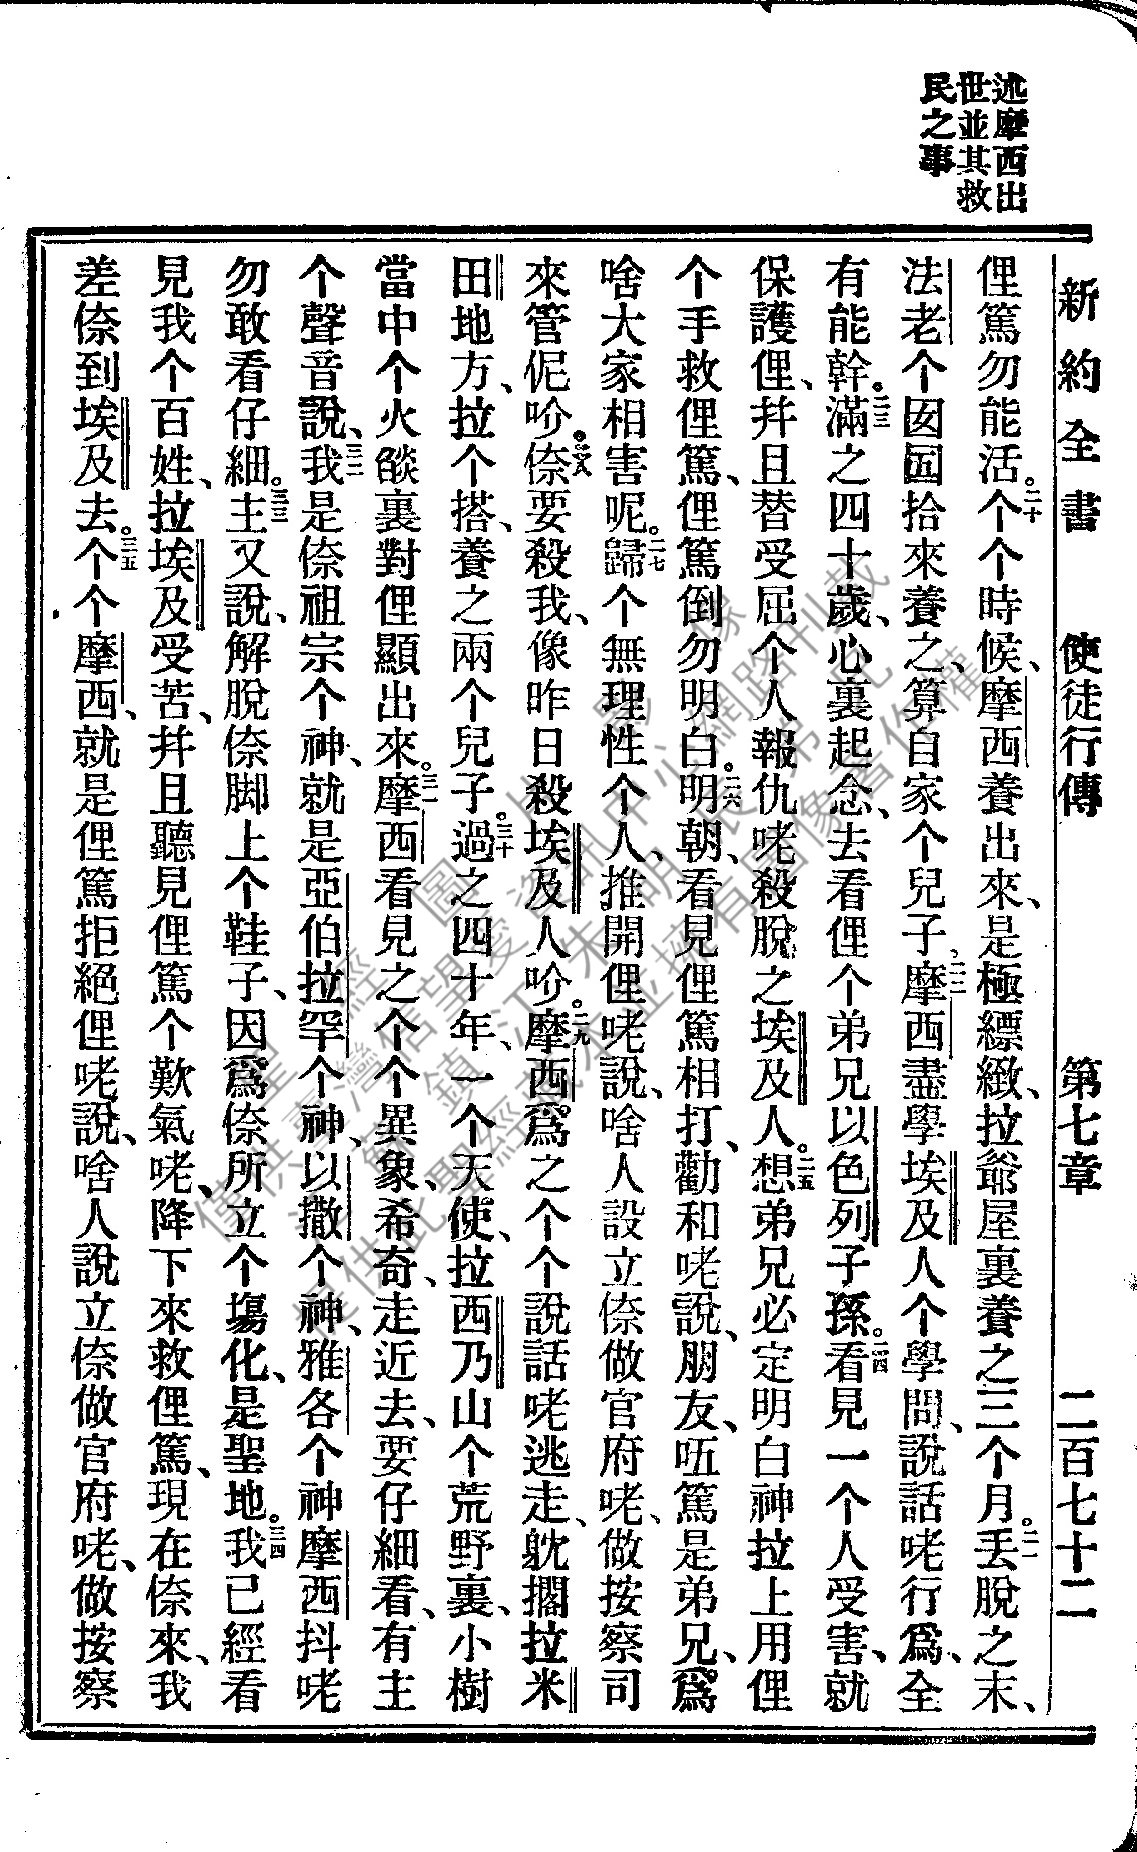 述摩西出
世並其救
民之事
新約全書　使徒行傳　第七章　二百七十二
俚篤勿能活。二十个个時候、摩西養出來、是極縹緻、拉爺屋裏養之三个月。二一丟脫之末、
法老个囡拾來養之、算自家个兒子。二二摩西盡學埃及人个學問、說話咾行爲、全
有能幹。二三滿之四十歲、心裏起念、去看俚个弟兄以色列子孫。二四看見一个人受害、就
保護俚、幷且替受屈个人報仇咾殺脫之埃及人。二五想弟兄必定明白神拉上用俚
个手救俚篤、俚篤倒勿明白。二六明朝、看見俚篤相打、勸和咾說、朋友、㕶篤是弟兄、爲
啥大家相害呢。二七歸个無理性个人、推開俚咾說、啥人設立倷做官府咾、做按察司
來管伲吤。二八倷要殺我、像昨日殺埃及人吤。二九摩西爲之个个說話咾逃走、躭擱拉米
田地方、拉个搭、養之兩个兒子。三十過之四十年、一个天使、拉西乃山个荒野裏、小樹
當中个火燄裏對俚顯出來。三一摩西看見之个个異象、希奇、走近去、要仔細看、有主
个聲音說、三二我是倷祖宗个神、就是亞伯拉罕个神、以撒个神、雅各个神摩西抖咾
勿敢看仔細。三三主又說、解脫倷脚上个鞋子、因爲倷所立个塲化、是聖地。三四我已經看
見我个百姓、拉埃及受苦、幷且聽見俚篤个歎氣咾、降下來救俚篤、現在倷來、我
差倷到埃及去。三五个个摩西、就是俚篤拒絕俚咾說、啥人說立倷做官府咾、做按察
僅供臺灣信望愛資訊中心網路刊載